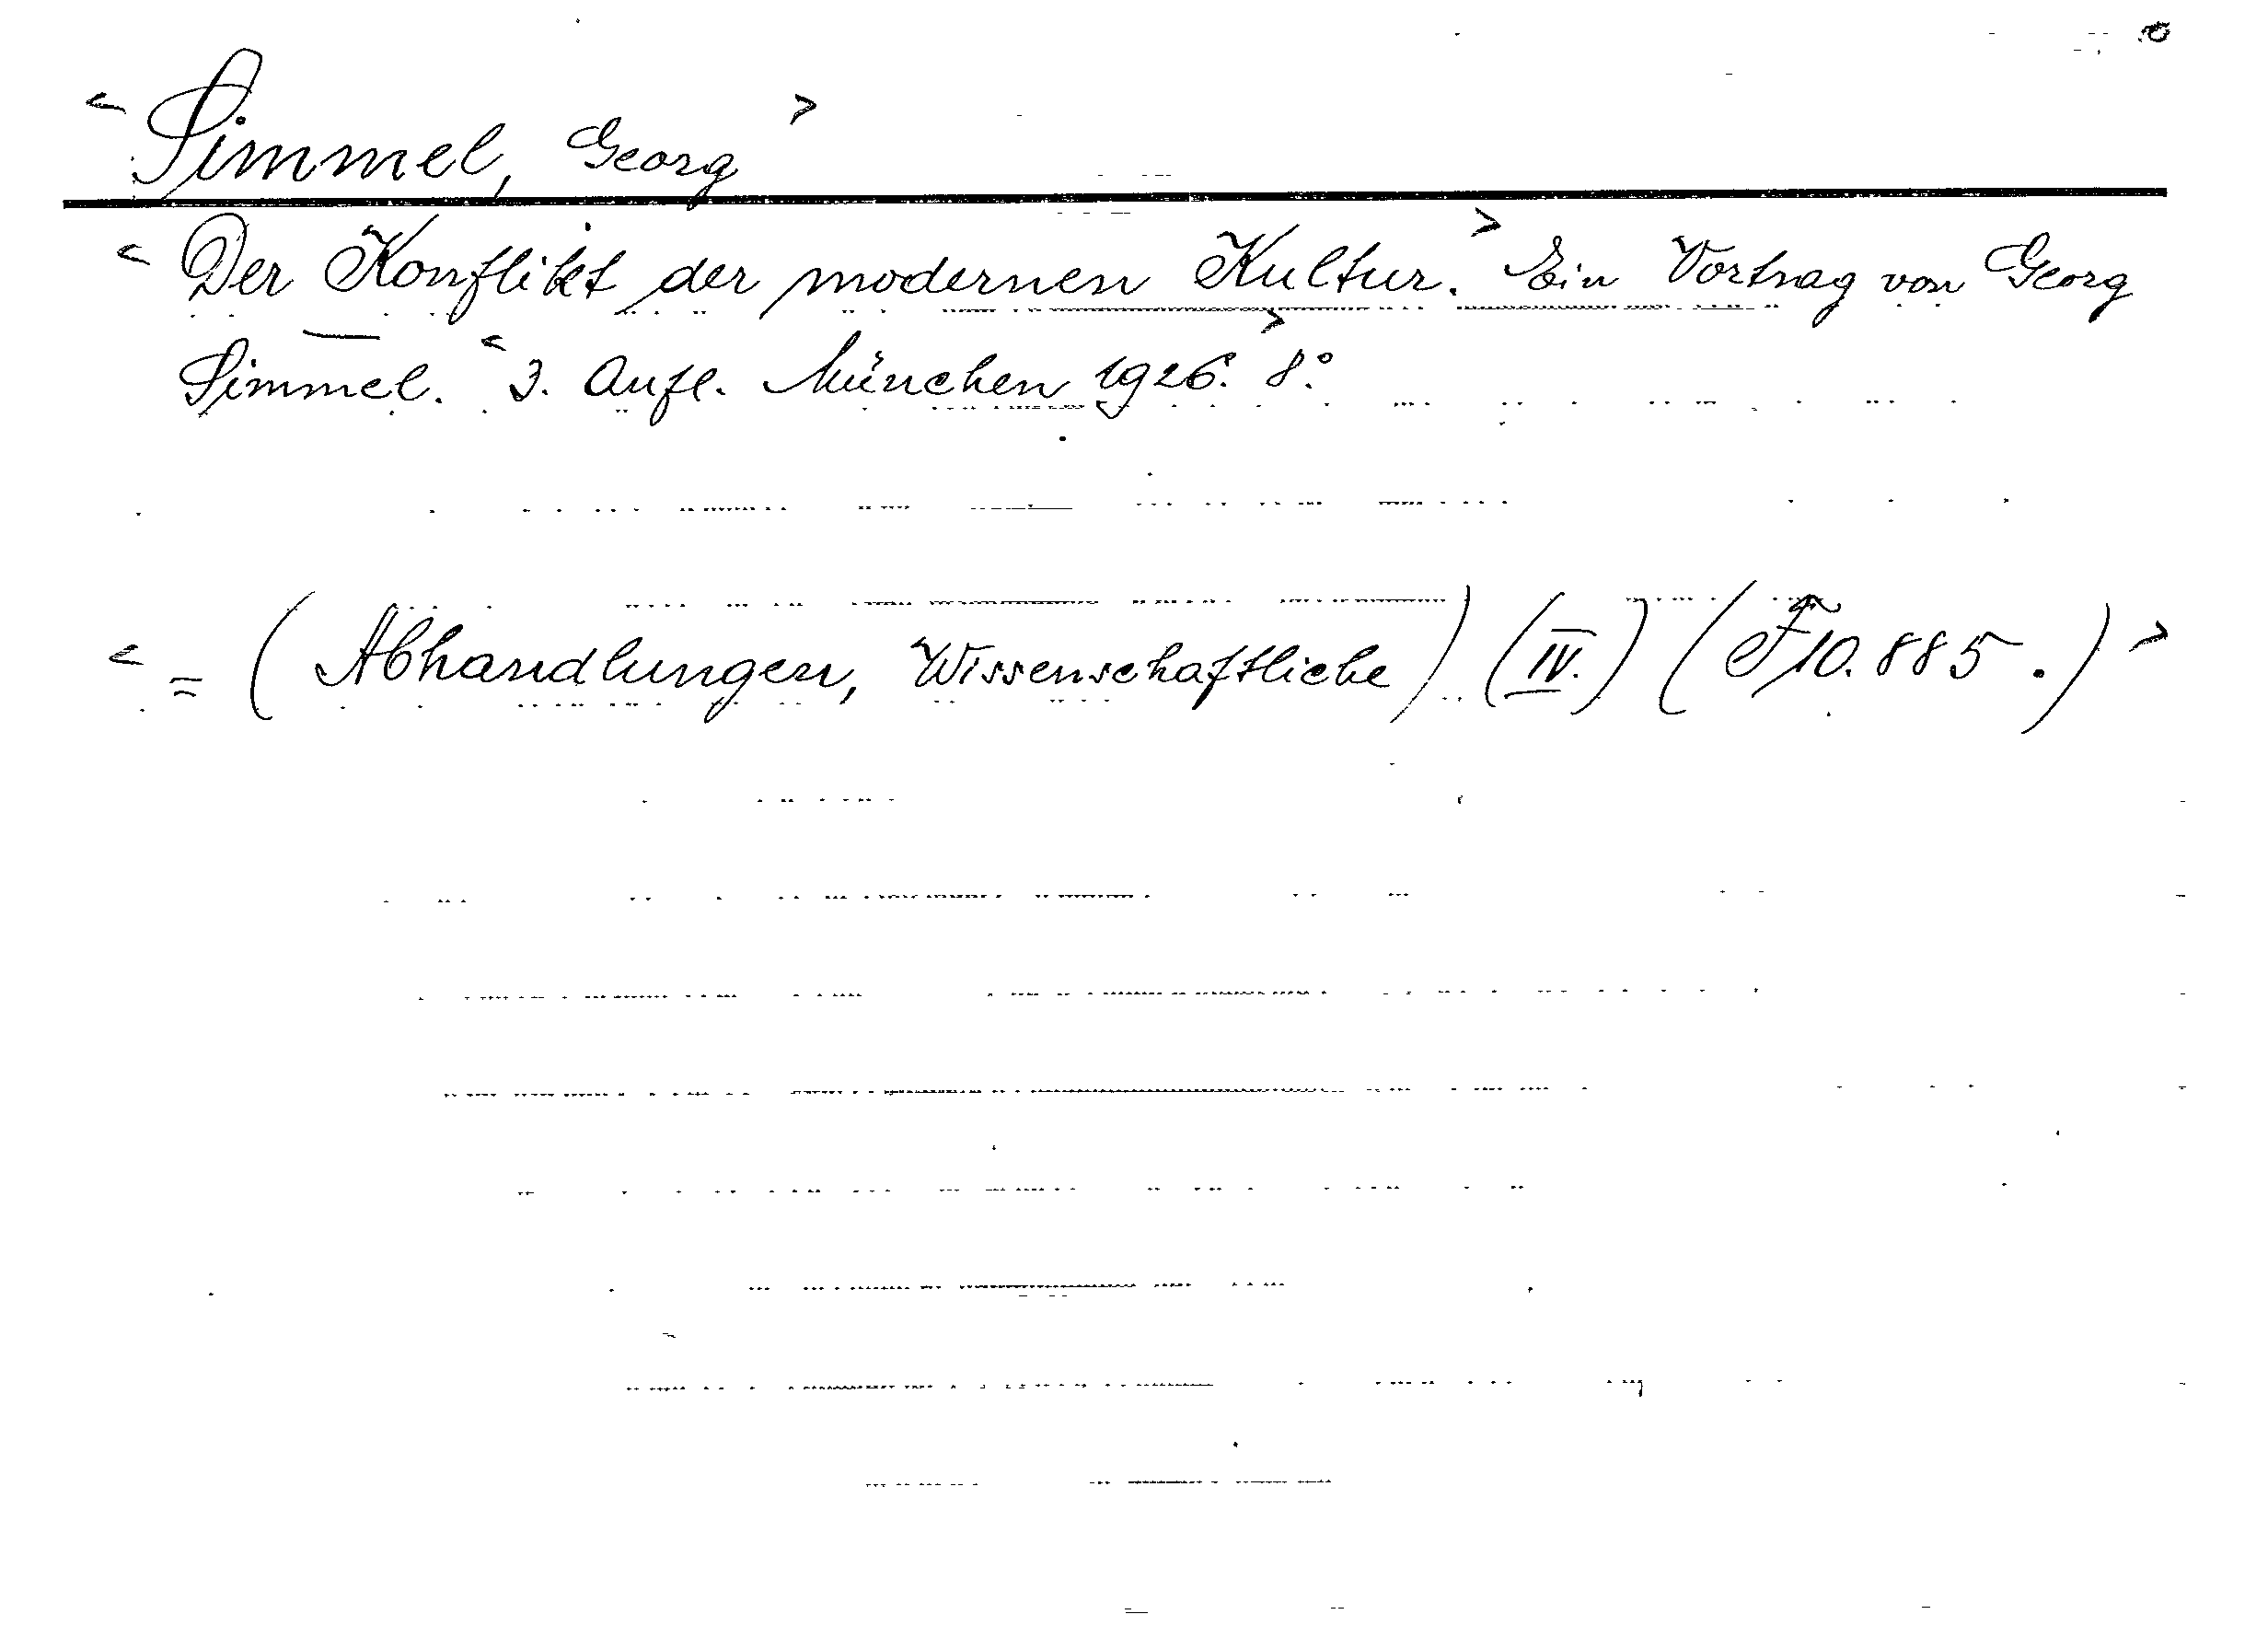 < Simmel, Georg >
< Der Konflikt der modernen Kultur. > Ein Vortrag von Georg
Simmel. < 3. Aufl. München 1926. > 8°.
< = (Abhandlungen, Wissenschaftliche) (IV.) (F 10.885.) >